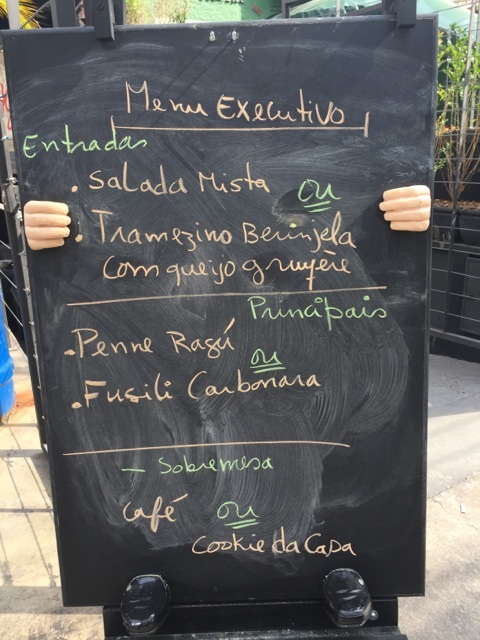 Menu Executivo
Entradas
. Salada Mista ou
. Tramezino Berinjela
com queijo gruyère
Principais
. Penne Ragú
ou
. Fusili Carbonara
- Sobremesa
Café ou
Cookie da Casa